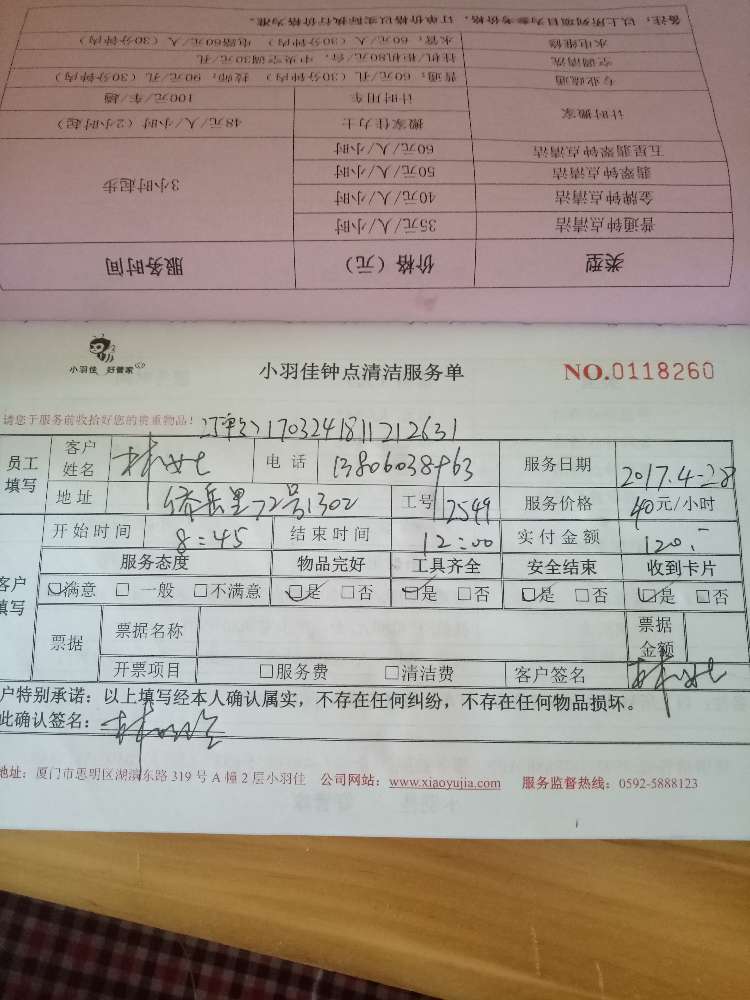 备注：以上所列项目为参考价格，订单价格以实际执行价格为准。
水电维修 水管：60元/人（30分钟内） 电路60元/人（30分钟内）
空调清洗 挂机/柜机80元/台，中央空调30元/孔
专业疏通 普通：60元/孔（30分钟内） 技师：90元/孔（30分钟内）
计时搬家 计时用车 100元/车/趟
搬家佳力士 48元/人/小时（2小时起）
五星翡翠钟点清洁 60元/人/小时
翡翠钟点清洁 50元/人/小时
金牌钟点清洁 40元/人/小时 3小时起步
普通钟点清洁 35元/人/小时
类型 价格（元） 服务时间
小羽佳 好管家 小羽佳钟点清洁服务单 NO.0118260
请您于服务前收拾好您的贵重物品！ 订单号1703241811212631
员工填写 客户姓名 林女士 电话 13806038963 服务日期 2017.4-28
地址 72号1302 工号 12549 服务价格 40元/小时
开始时间 8:45 结束时间 12:00 实付金额 120.-
服务态度 物品完好 工具齐全 安全结束 收到卡片
客户填写 ☑满意 □一般 □不满意 ☑是 □否 ☑是 □否 ☑是 □否 ☑是 □否
票据 票据名称 票据金额
开票项目 □服务费 □清洁费 客户签名 林女士
户特别承诺：以上填写经本人确认属实，不存在任何纠纷，不存在任何物品损坏。
此确认签名：
地址：厦门市思明区湖滨东路 319 号 A 幢 2 层小羽佳 公司网站：www.xiaoyujia.com 服务监督热线：0592-5888123